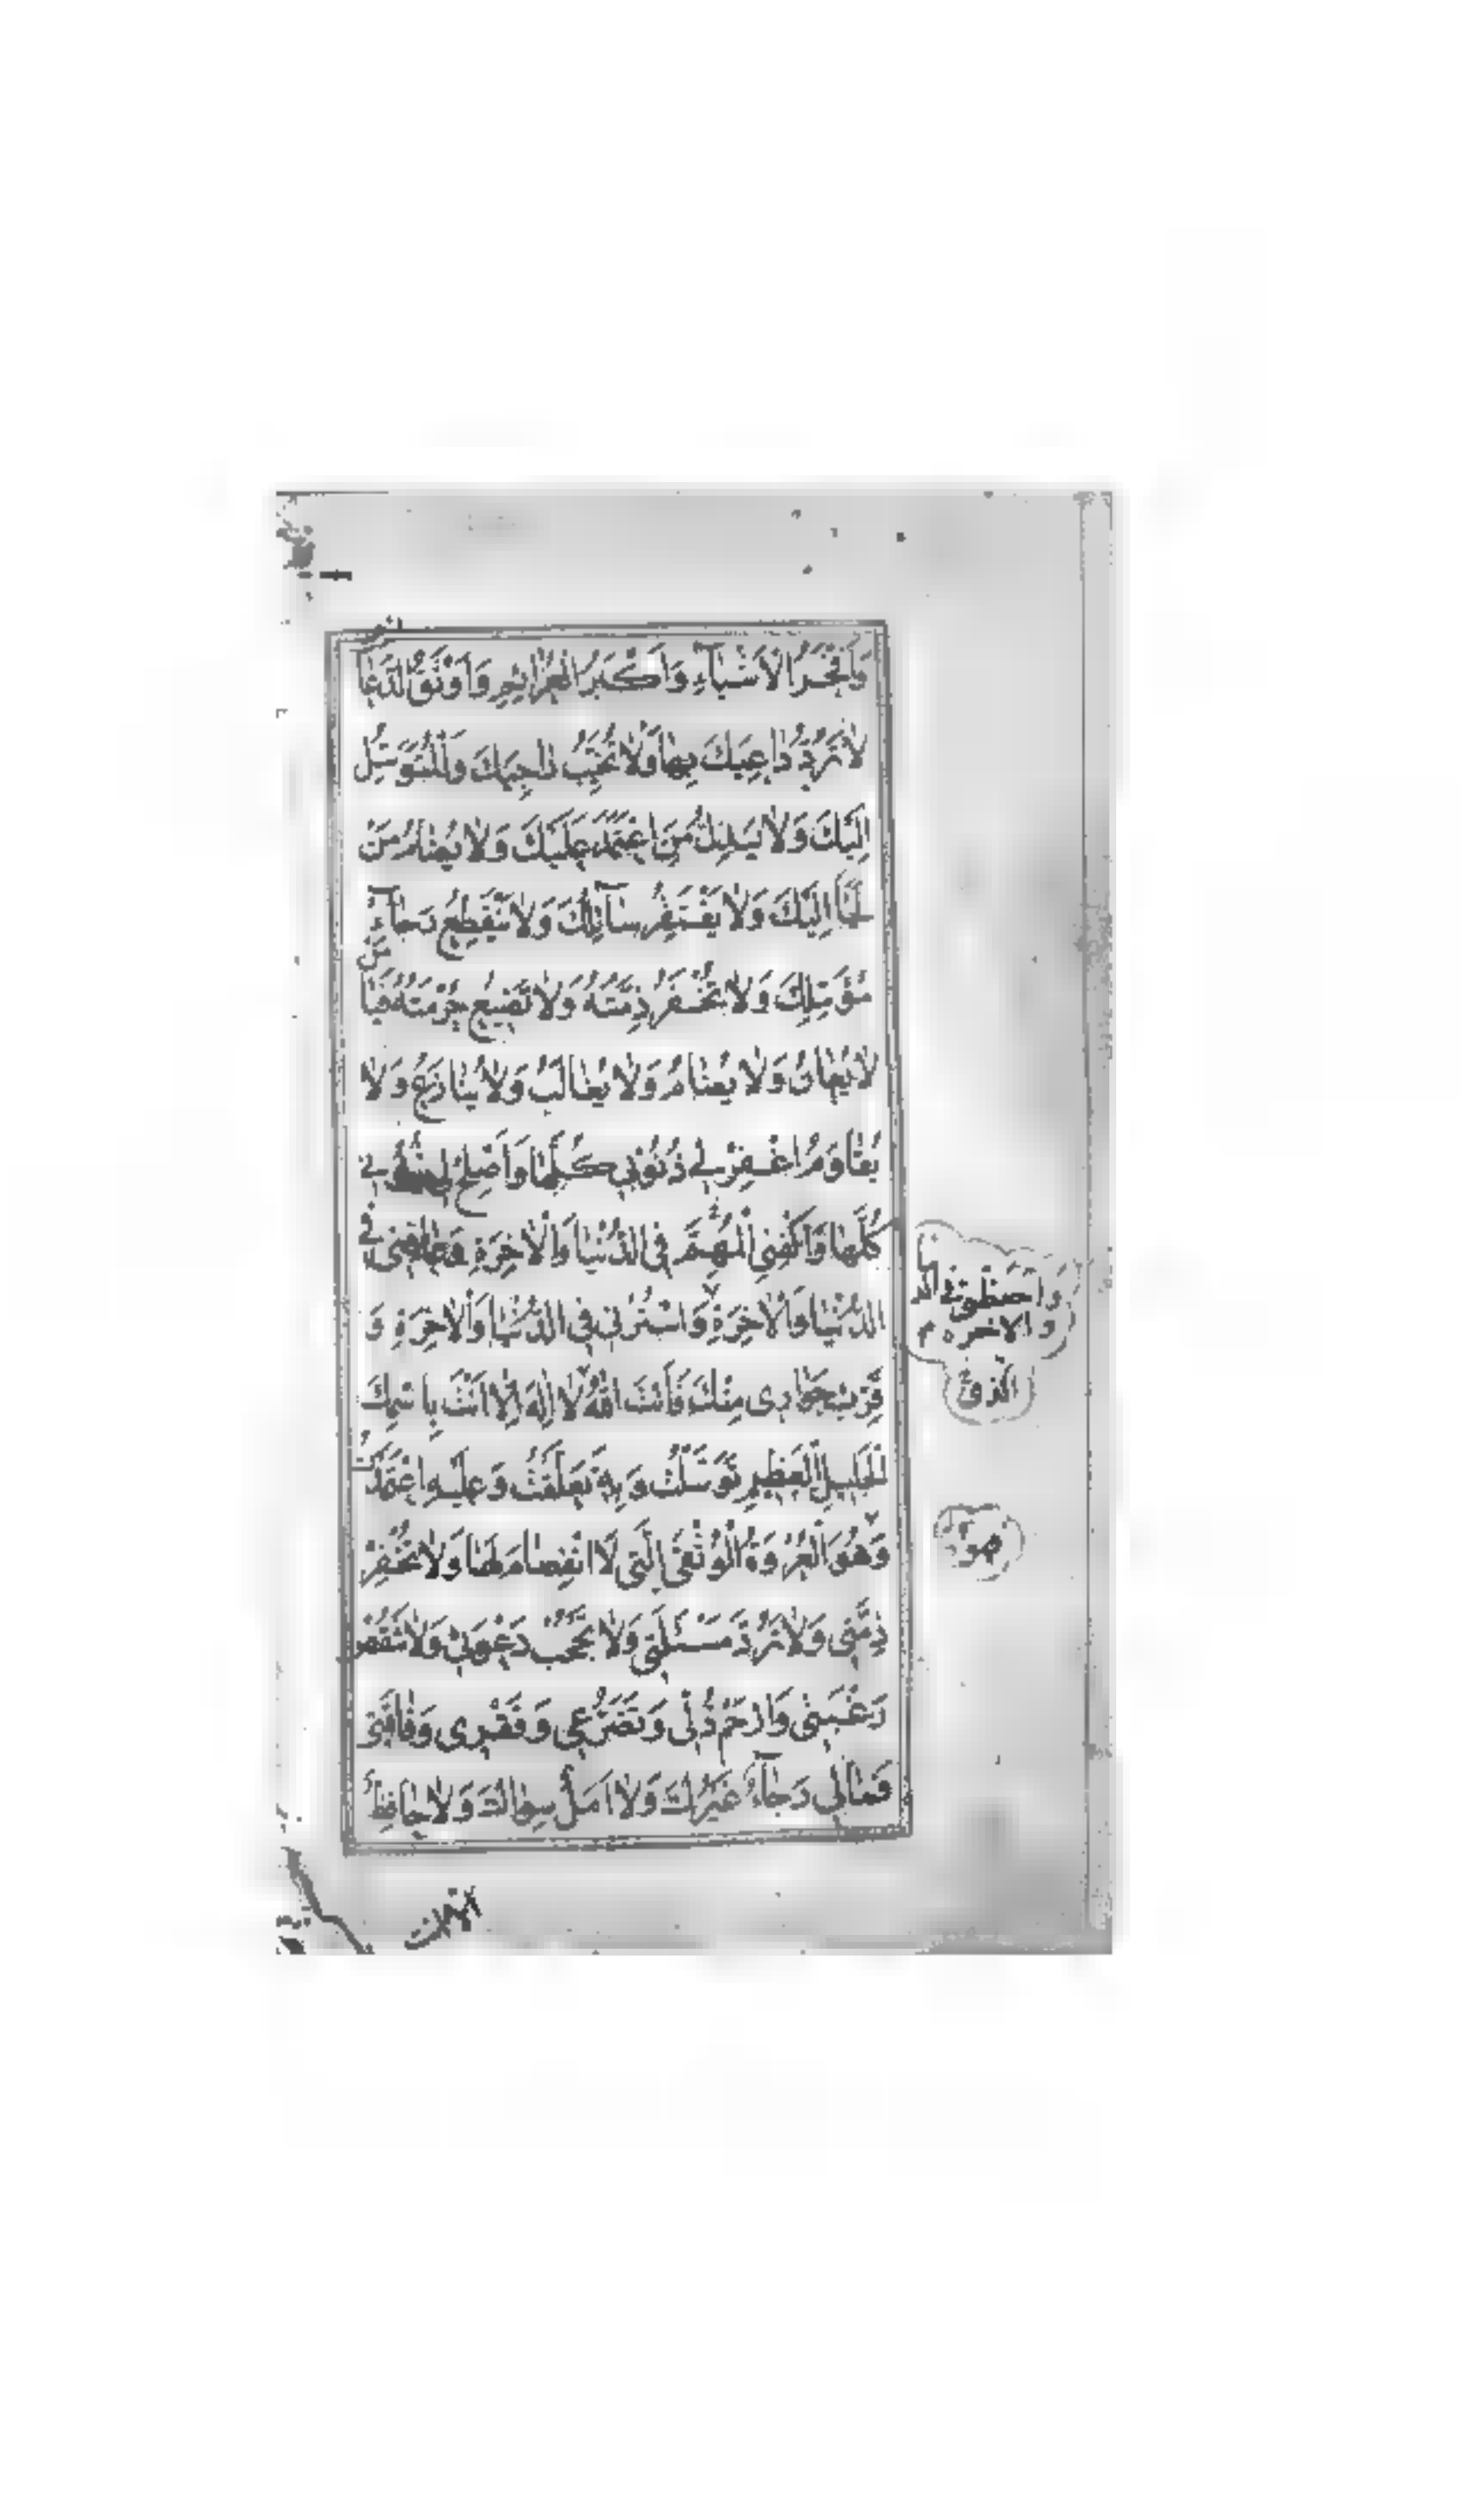 وَاَفْخَرُ الْاَشْيٰآءِ وَاَكْبَرُ الْعَزٰائِمِ وَاَوْثَقُ الدَّعٰا
لٰا تَرُدُّ دٰاعِيَكَ بِهٰا وَلٰا تُخَيِّبُ رٰاجِيَكَ وَالْمُتَوَسِّلُ
اِلَيْكَ وَلٰا يَذِلُّ مَنِ اعْتَمَدَ عَلَيْكَ وَلٰا يُضٰامُ مَنْ
لَجَاَ اِلَيْكَ وَلٰا يَفْتَقِرُ سٰآئِلُكَ وَلٰا يَنْقَطِعُ رَجٰآءُ
مُؤَمِّلِكَ وَلٰا تُخْفَرُ ذِمَّتُهُ وَلٰا تَضِيعُ حُرْمَتُهُ فَيٰا مَنْ
لٰا يُعٰانُ وَلٰا يُضٰامُ وَلٰا يُغٰالَبُ وَلٰا يُنٰازَعُ وَلٰا
يُقٰاوَمُ اغْفِرْ لِي ذُنُوبِي كُلَّهٰا وَاَصْلِحْ لِي شُؤُنِي
كُلَّهٰا وَاكْفِنِي الْمُهِمَّ فِي الدُّنْيٰا وَالْاٰخِرَةِ وَعٰافِنِي فِي
الدُّنْيٰا وَالْاٰخِرَةِ وَاسْتُرْنِي فِي الدُّنْيٰا وَالْاٰخِرَةِ وَ
واحفظنى فى الد
والاخره م
قَرِّبْ جَوٰارِي مِنْكَ فَاَنْتَ اللّٰهُ لٰا اِلٰهَ اِلّٰا اَنْتَ بِاسْمِكَ
الْجَلِيلِ الْعَظِيمِ تَوَسَّلْتُ وَبِهِ تَعَلَّقْتُ وَعَلَيْهِ اعْتَمَدْتُ
وَهُوَ الْعُرْوَةُ الْوُثْقٰى الَّتِي لَا انْفِصٰامَ لَهٰا وَلٰا تُخْفِرْ
ذِمَّتِي وَلٰا تَرُدَّ مَسْئَلَتِي وَلٰا تَحْجُبْ دَعْوَتِي وَلٰا تَنْقُصْ
رَغْبَتِي وَارْحَمْ ذُلِّي وَتَضَرُّعِي وَفَقْرِي وَفٰاقَتِي
فَمٰا لِي رَجٰآءٌ غَيْرُكَ وَلٰا اَمَلٌ سِوٰاكَ وَلٰا حٰافِظٌ